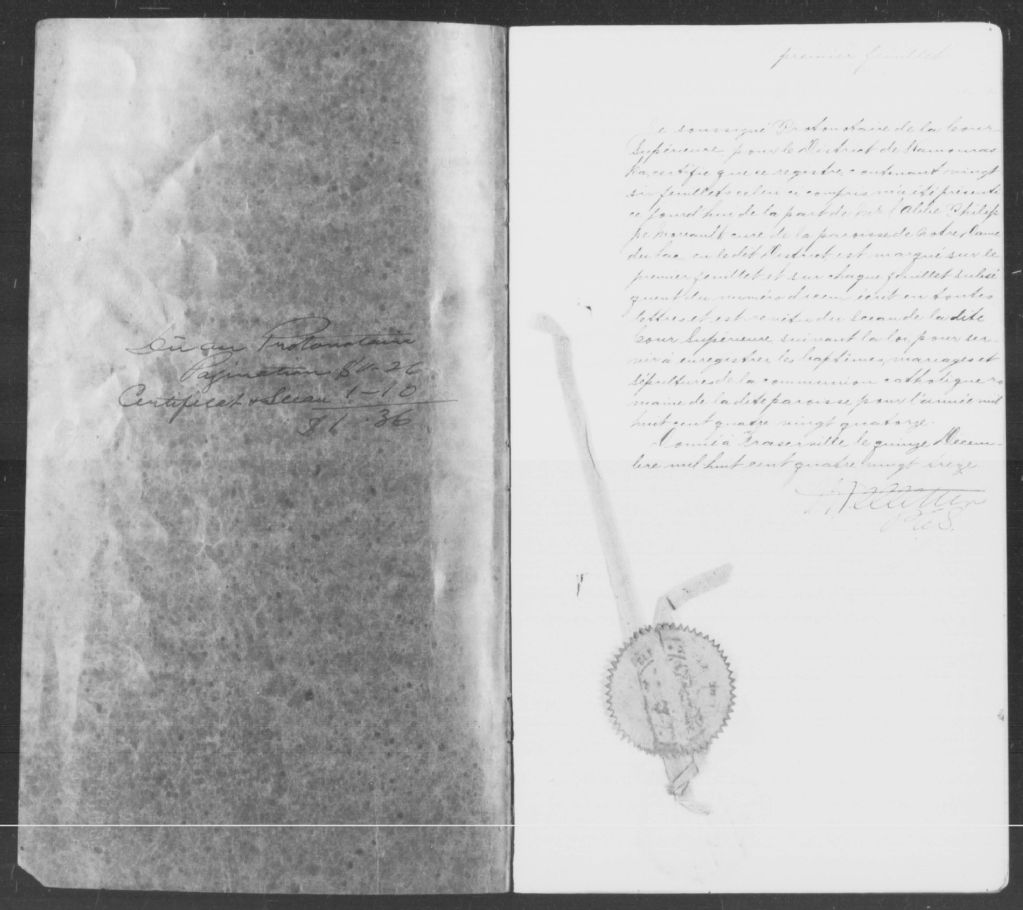 Dû au Protonotaire
Pagination $0-26
Certificat & Sceau 1-10
$1-36
premier feuillet
Je soussigné Protonotaire de la Cour
Supérieure pour le District de Kamouras
ka, certifie que ce registre contenant vingt
six feuillets celui ci compris m'a été présenté
ce jourd'hui de la part de Mr l'Abbé Philip
pe Moreault curé de la paroisse de Notre Dame
du Lac en le dit District est marqué sur le
premier feuillet et sur chaque feuillet subsé
quent du numéro d'iceux écrit en toutes
lettres et est revêtu du sceau de la dite
Cour Supérieure suivant la loi, pour ser-
vir à enregistrer les baptêmes, mariages et
sépultures de la communion catholique ro
maine de la dite paroisse pour l'année mil
huit cent quatre vingt quatorze.
Donné à Fraserville le quinze Décem-
bre mil huit cent quatre vingt treize
P.C.S.